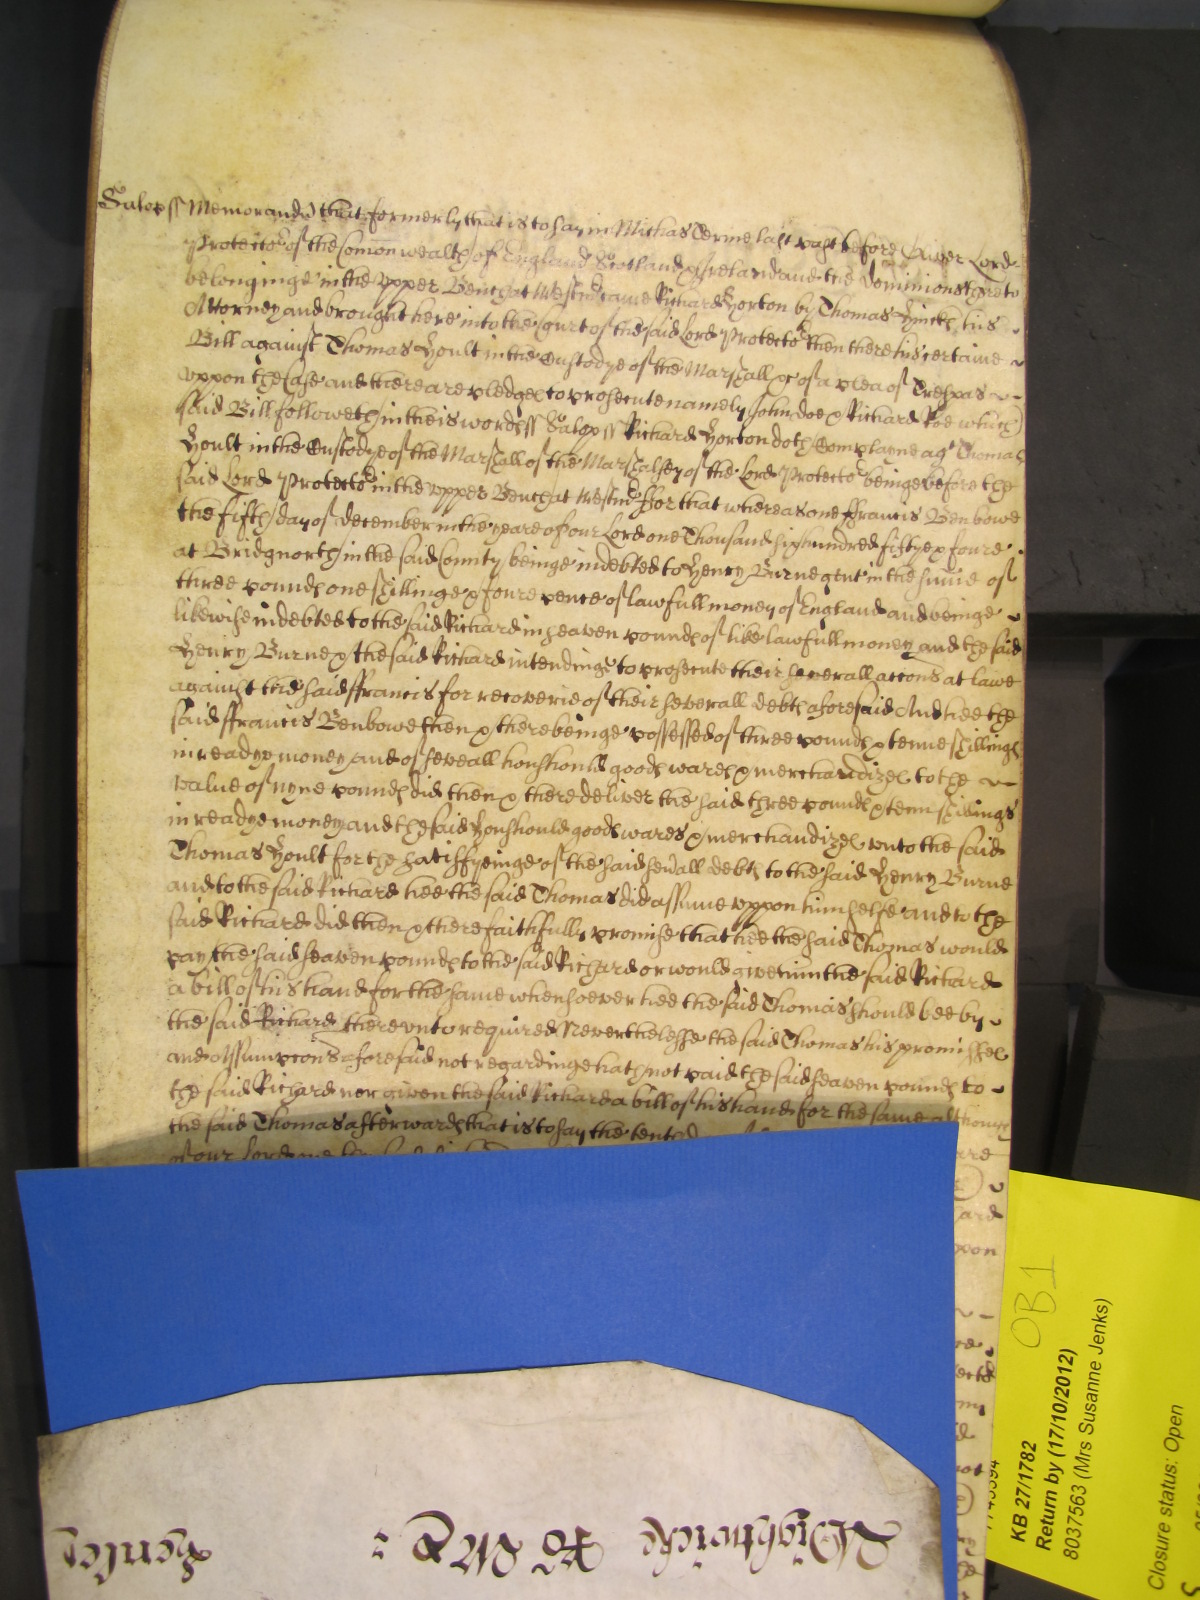 Salop ss Memorand that formerly that is to say in Michas Terme last past before Oliver Lord
Protector of the Comonwealth of England Scotland & Ireland and the dominions thereto
belonginge in the upper Bench at Westmr came Richard Yorton by Thomas Finch his
Attorney and brought here into the Court of the said Lord Protector then there his certaine
Bill against Thomas Yoult in the Custodye of the Marshall &c of a plea of Trespas
uppon the Case and there are pledges to prosecute namely John doe & Richard Roe which
said Bill followeth in theis words ss Salop ss Richard Yorton doth Complayne agt Thomas
Yoult in the Custodye of the Marshall of the Marshalsey of the Lord Protector beinge before the
said Lord Protector in the upper Bench at Westmr ffor that whereas one ffrancis Benbowe
the fifth day of december in the yeare of our Lord one Thousand six hundred fiftye & foure
at Bridgnorth in the said County beinge indebted to Henry Burne gent in the sume of
three pounds one shillinge & foure pence of lawfull money of England and beinge
likewise indebted to the said Richard in seaven pounds of like lawfull money and the said
Henry Burne & the said Richard intendinge to prosecute their severall accons at lawe
against the said ffrancis for recoverie of their severall debts aforesaid And hee the
said ffrancis Benbowe then & there beinge possessed of three pounds & tenne shillings
in readye money and of severall houshould goods wares & merchandizes to the
value of nyne pounds did then & there deliver the said three pounds & tenn shillings
in readye money and the said houshould goods wares & merchandizes unto the said
Thomas Yoult for the satisfyeinge of the said sevrall debts to the said Henry Burne
and to the said Richard hee the said Thomas did assume uppon himselfe and to the
said Richard did then & there faithfully promise that hee the said Thomas would
pay the said seaven pounds to the said Richard or would give him the said Richard
a bill of his hand for the same whensoever hee the said Thomas should bee by
the said Richard thereunto required Neverthelesse the said Thomas his promisses
and Assumpcons aforesaid not regardinge hath not paid the said seaven pounds to
the said Richard nor given the said Richard a bill of his hand for the same although
the said Thomas afterwards that is to say the tenth
of our Lord one
ard
pon
not
KB 27/1782
OB1
Return by (17/10/2012)
8037563 (Mrs Susanne Jenks)
Closure status: Open
Wightwicke Ro